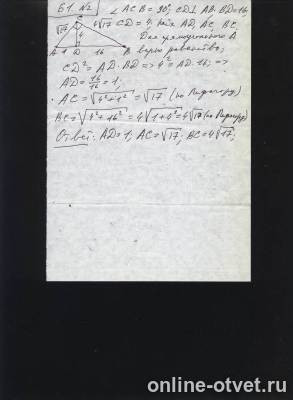 Б1. №2 ∠ACB = 90°, CD⊥AB. BD=16,
√17 4 4√17 CD = 4. AC, BC,
A 1 D 16 B Для прямоугольного Δ
верно равенство;
CD² = AD · BD => 4² = AD · 16; =>
AD = 16/16 = 1,
AC = √4²+1² = √17 (по Пифагору)
BC = √4²+16² = 4√1+4² = 4√17 (по Пифагору)
Ответ: AD = 1, AC = √17; BC = 4√17;
online-otvet.ru